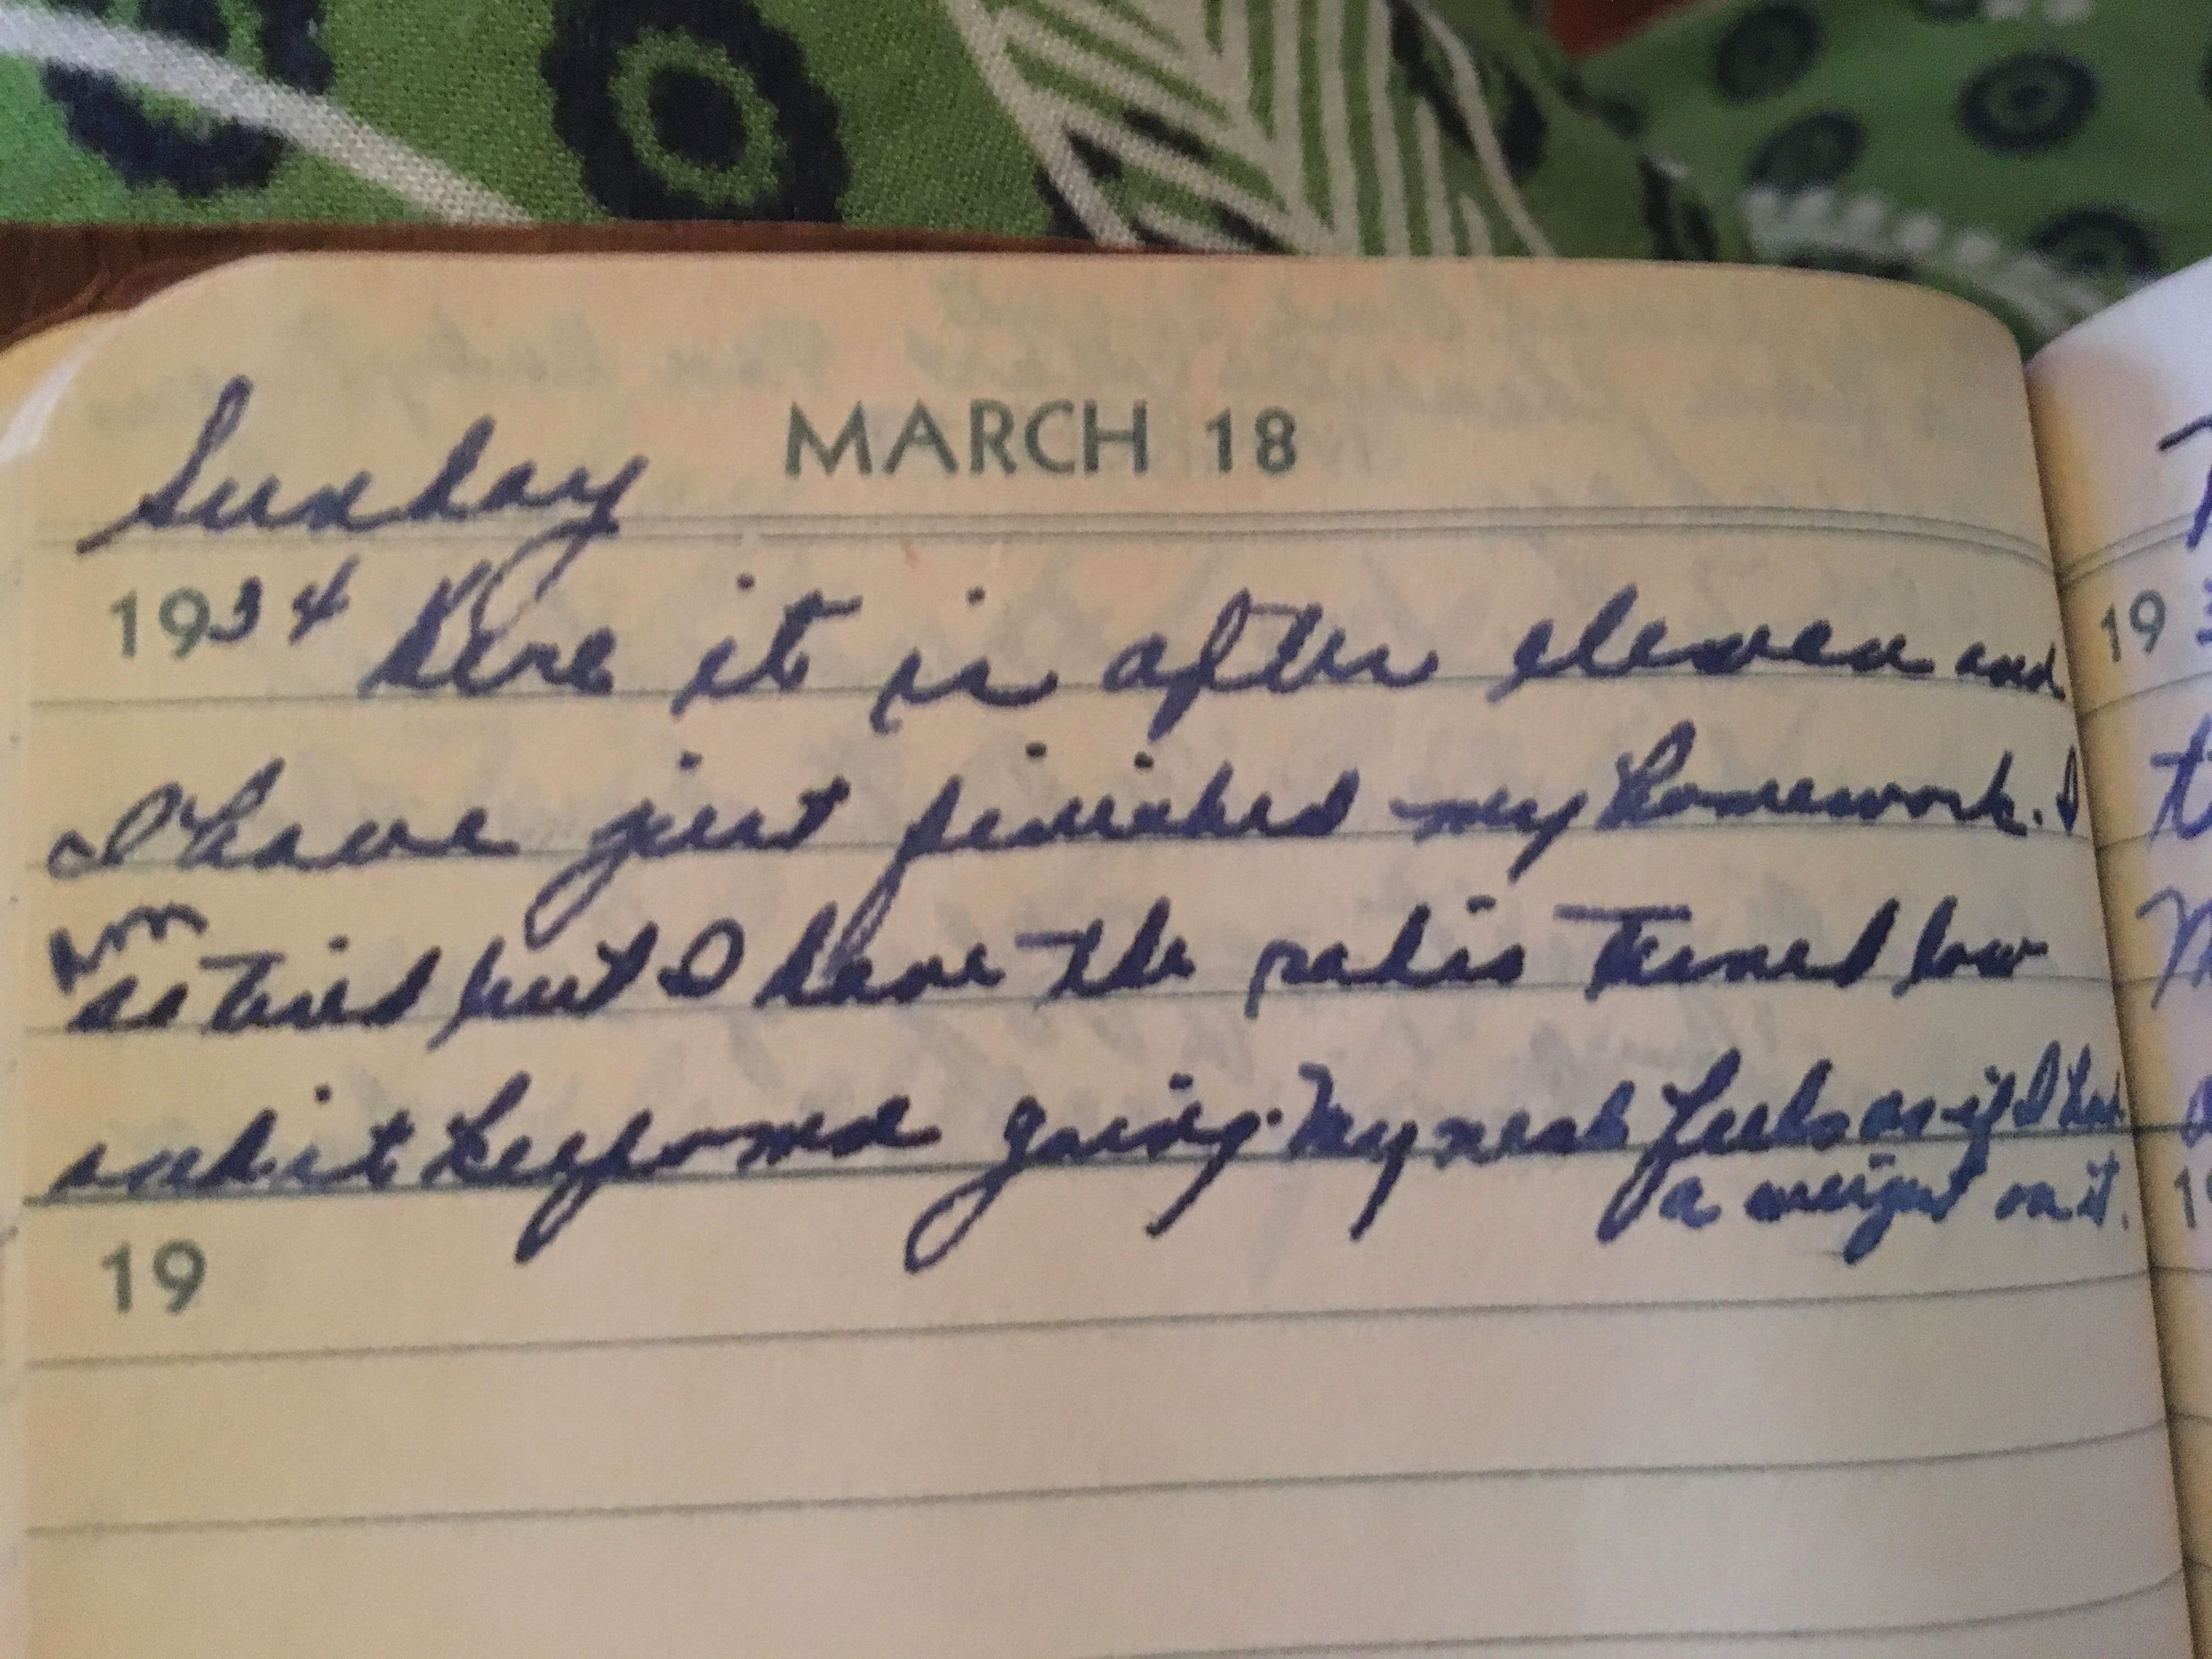 Sunday
MARCH 18
1934 Here it is after eleven and
I have just finished my homework. I
am
so tired but I have the radio turned low
and it keeps me going. My neck feels as if I had
a weight on it.
19
19